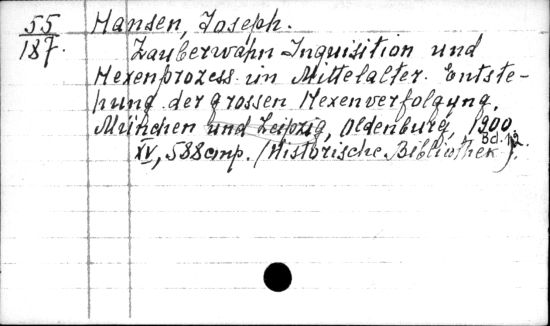 55 Hansen, Joseph.
187. Zauberwahn Inquisition und
Hexenprozess im Mittelalter. Entste-
hung der grossen Hexenverfolgung.
München und Leipzig, Oldenburg, 1900.
XV, 588 стр. (Historische Bibliothek Bd. 12.)